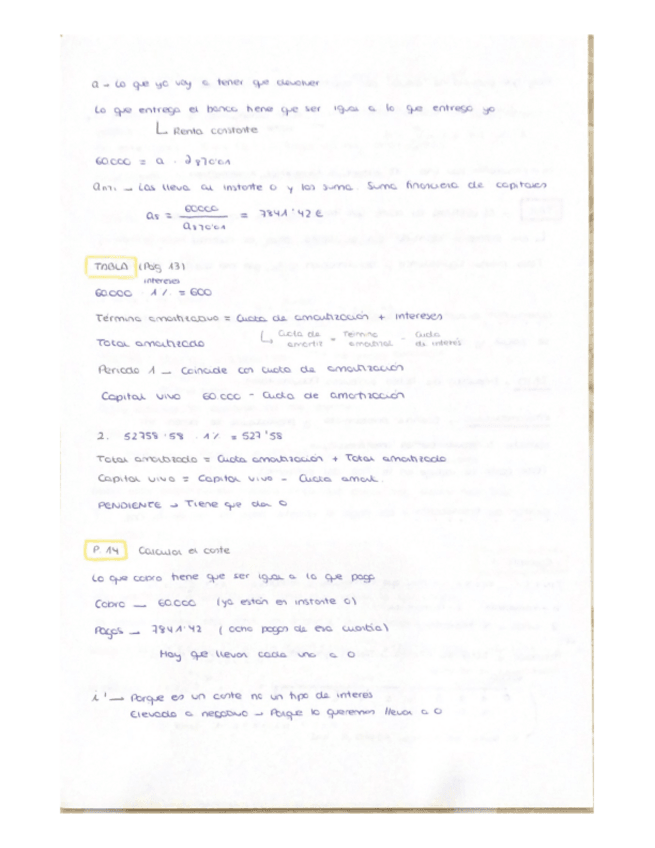 a → Lo que yo voy a tener que devolver
Lo que entrega el banco tiene que ser igual a lo que entrego yo
↳ Renta constante
60000 = a · a8⌉0'01
an⌉i → Las lleva al instante 0 y las suma. Suma financiera de capitales
as = 60000 / a8⌉0'01 = 7841'42 €
TABLA (Pág 13)
intereses
60.000 · 1% = 600
Término amortizativo = Cuota de amortización + intereses
Total amortizado ↳ Cuota de amortiz = Término amortizat. - Cuota de interés
Periodo 1 → Coincide con cuota de amortización
Capital vivo 60.000 - Cuota de amortización
2. 52758'58 · 1% = 527'58
Total amortizado = Cuota amortización + Total amortizado
Capital vivo = Capital vivo - Cuota amort.
PENDIENTE → Tiene que dar 0
P. 14 Calcular el coste
Lo que cobro tiene que ser igual a lo que pago
Cobro → 60.000 (ya están en instante 0)
Pagos → 7841'42 (ocho pagos de esa cuantía)
Hay que llevar cada uno a 0
i' → Porque es un coste no un tipo de interes
Elevado a negativo → Porque lo queremos llevar a 0